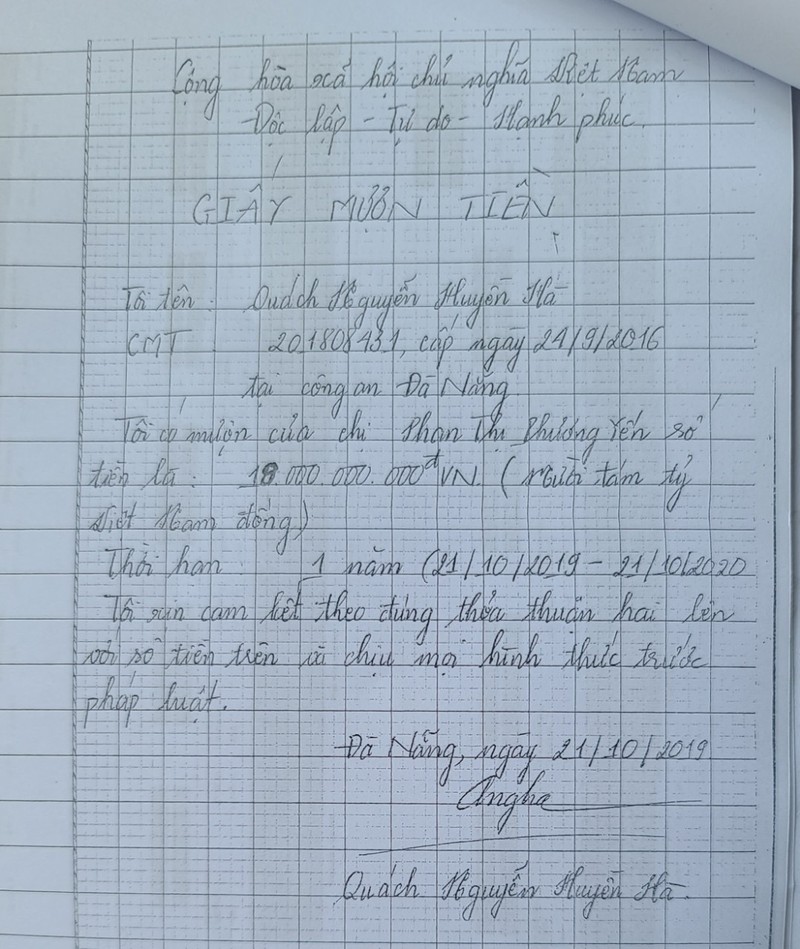 Cộng hòa xã hội chủ nghĩa Việt Nam
Độc lập - Tự do - Hạnh phúc.
GIẤY MƯỢN TIỀN
Tôi tên: Quách Nguyễn Huyền Hà
CMT 201808431, cấp ngày 21/9/2016
tại công an Đà Nẵng
Tôi có mượn của chị Phan Thị Phương Yến số
tiền là: 18.000.000.000đ VN. (Mười tám tỷ
Việt Nam đồng)
Thời hạn 1 năm (21/10/2019 - 21/10/2020
Tôi xin cam kết theo đúng thỏa thuận hai bên
với số tiền trên và chịu mọi hình thức trước
pháp luật.
Đà Nẵng, ngày 21/10/2019
Quách Nguyễn Huyền Hà.